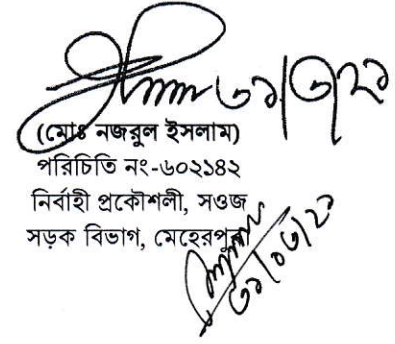 ৩১/৩/২১
(মোঃ নজরুল ইসলাম)
পরিচিতি নং-৬০২১৪২
নির্বাহী প্রকৌশলী, সওজ
সড়ক বিভাগ, মেহেরপুর।
৩১/০৩/২১